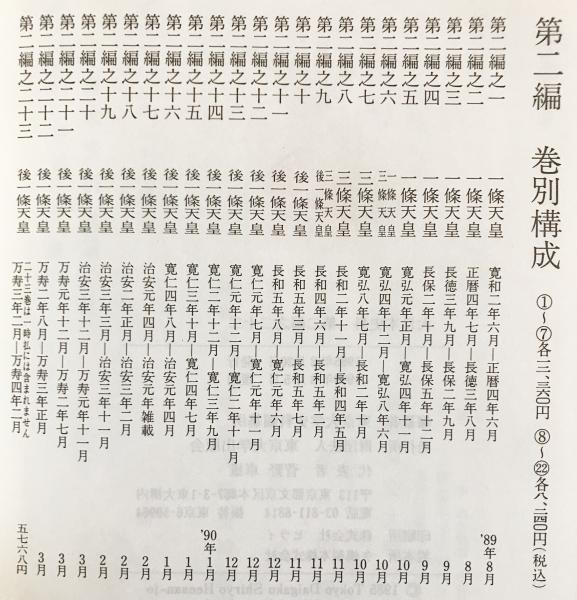 第二編 巻別構成 ①〜⑦各三、三六〇円 ⑧〜㉒各八、二四〇円(税込)
第二編之一 一條天皇 寛和二年六月―正暦四年六月 '89年8月
第二編之二 一條天皇 正暦四年七月―長徳三年八月 8月
第二編之三 一條天皇 長徳三年九月―長保二年九月 9月
第二編之四 一條天皇 長保二年十月―長保五年十二月 9月
第二編之五 一條天皇 寛弘元年正月―寛弘四年十一月 10月
第二編之六 一條天皇 三條天皇 寛弘四年十二月―寛弘八年六月 10月
第二編之七 三條天皇 寛弘八年 ―長和二年十月 10月
第二編之八 三條天皇 長和二年十一月―長和四年五月 11月
第二編之九 三條天皇 後一條天皇 長和四年六月―長和五年二月 11月
第二編之十 後一條天皇 長和五年三月―長和五年七月 11月
第二編之十一 後一條天皇 長和五年八月―寛仁元年六月 12月
第二編之十二 後一條天皇 寛仁元年七月―寛仁元年十一月 12月
第二編之十三 後一條天皇 寛仁元年十二月―寛仁二年十一月 12月
第二編之十四 後一條天皇 寛仁二年十二月―寛仁三年九月 '90年1月
第二編之十五 後一條天皇 寛仁三年十月―寛仁四年七月 1月
第二編之十六 後一條天皇 寛仁四年八月―治安元年四月 1月
第二編之十七 後一條天皇 治安元年四月―治安元年雑載 2月
第二編之十八 後一條天皇 治安二年正月―治安三年二月 2月
第二編之十九 後一條天皇 治安三年三月―治安三年十一月 2月
第二編之二十 後一條天皇 治安三年十二月―万寿元年十一月 3月
第二編之二十一 後一條天皇 万寿元年十二月―万寿二年七月 3月
第二編之二十二 後一條天皇 万寿二年八月―万寿三年正月 3月
第二編之二十三 後一條天皇 万寿三年二月―万寿四年二月 五七六八円
二十三巻は一時払には含まれません